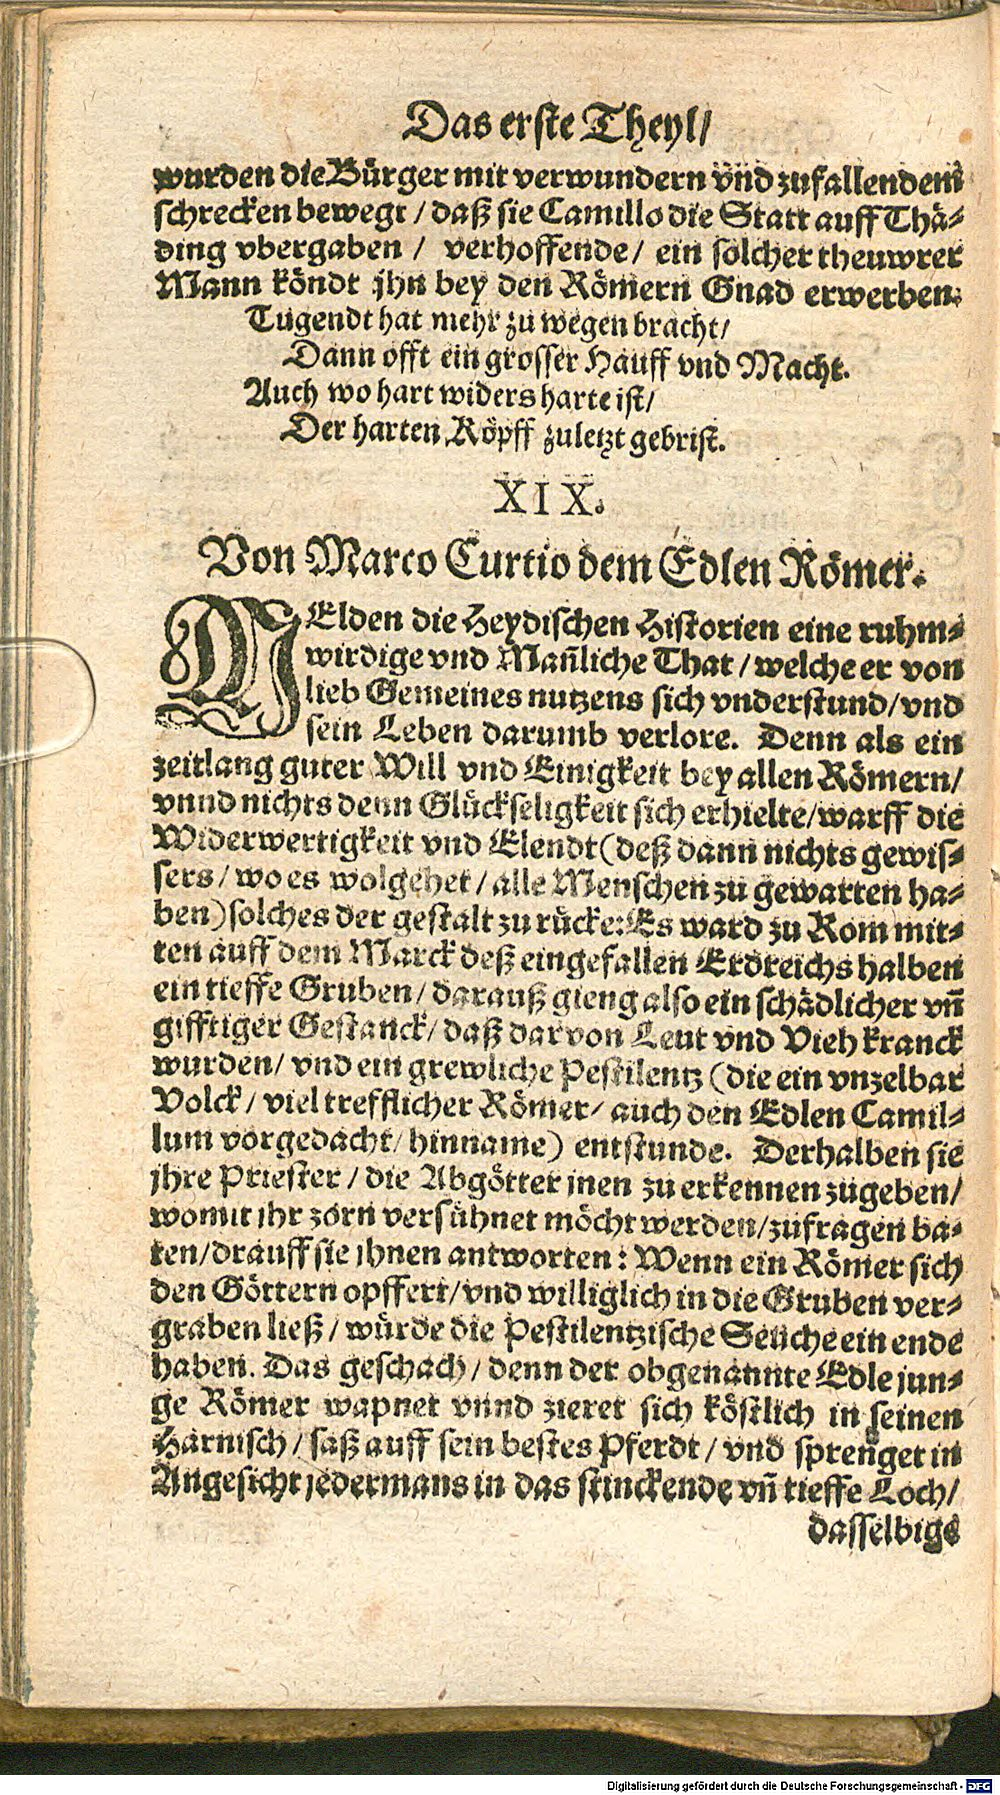 Das erste Theyl/
wurden die Bürger mit verwundern vnd zufallendem
schrecken bewegt / daß sie Camillo die Statt auff Thä⸗
ding vbergaben / verhoffende / ein solcher theuwrer
Mann köndt jhn bey den Römern Gnad erwerben.
Tugendt hat mehr zu wegen bracht/
Dann offt ein grosser Hauff vnd Macht.
Auch wo hart widers harte ist/
Der harten Köpff zuletzt gebrist.
XIX.
Von Marco Curtio dem Edlen Römer.
MElden die Heydischen Historien eine ruhm⸗
wirdige vnd Mañliche That / welche er von
lieb Gemeines nutzens sich vnderstund/vnd
sein Leben darumb verlore. Denn als ein
zeitlang guter Will vnd Einigkeit bey allen Römern/
vnnd nichts denn Glückseligkeit sich erhielte/warff die
Widerwertigkeit vnd Elendt (deß dann nichts gewis⸗
sers / wo es wolgehet / alle Menschen zu gewarten ha⸗
ben) solches der gestalt zu rücke: Es ward zu Rom mit⸗
ten auff dem Marck deß eingefallen Erdreichs halben
ein tieffe Gruben / darauß gieng also ein schädlicher vñ
gifftiger Gestanck/ daß darvon Leut vnd Vieh kranck
wurden/ vnd ein grewliche Pestilentz (die ein vnzelbar
Volck / viel trefflicher Römer/ auch den Edlen Camil⸗
lum vorgedacht/ hinname) entstunde. Derhalben sie
jhre Priester / die Abgötter jnen zu erkennen zugeben/
womit jhr zorn versühnet möcht werden/zufragen ba⸗
ten/drauff sie jhnen antworten: Wenn ein Römer sich
den Göttern opffert/vnd williglich in die Gruben ver⸗
graben ließ / würde die Pestilentzische Seuche ein ende
haben. Das geschach / denn der obgenannte Edle jun⸗
ge Römer wapnet vnnd zieret sich köstlich in seinen
Harnisch / saß auff sein bestes Pferdt / vnd sprenget in
Angesicht jedermans in das stinckende vñ tieffe Loch/
dasselbige
Digitalisierung gefördert durch die Deutsche Forschungsgemeinschaft - DFG